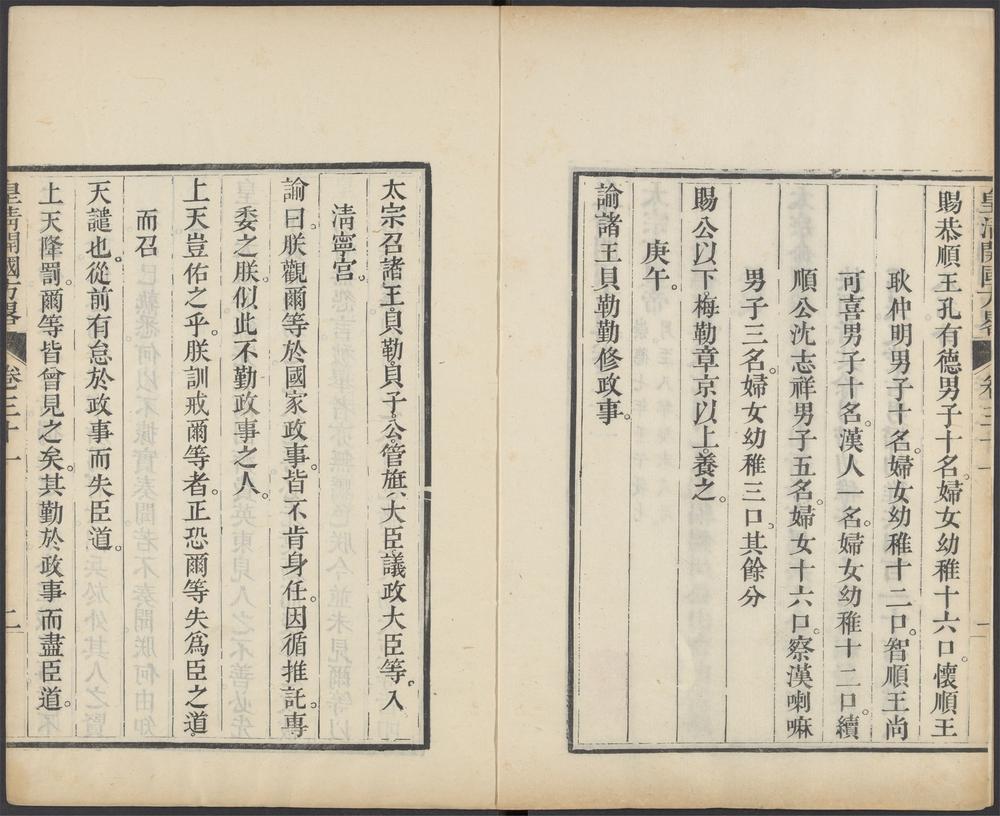 皇清開國方畧 卷三十一 一
賜恭順王孔有德男子十名。婦女幼稚十六口。懷順王
耿仲明男子十名。婦女幼稚十二口。智順王尚
可喜男子十名。漢人一名。婦女幼稚十二口。續
順公沈志祥男子五名。婦女十六口。察漢喇嘛
男子三名。婦女幼稚三口。其餘分
賜公以下梅勒章京以上。養之。
庚午。
諭諸王貝勒勤修政事。
太宗召諸王。貝勒。貝子。公。管旗八大臣。議政大臣等。入
清寧宮。
諭曰。朕觀爾等於國家政事。皆不肯身任。因循推託。專
委之朕。似此不勤政事之人。
上天豈佑之乎。朕訓戒爾等者。正恐爾等失爲臣之道。
而召
天譴也。從前有怠於政事而失臣道。
上天降罰。爾等皆曾見之矣。其勤於政事而盡臣道。
皇清開國方畧 卷三十一 二